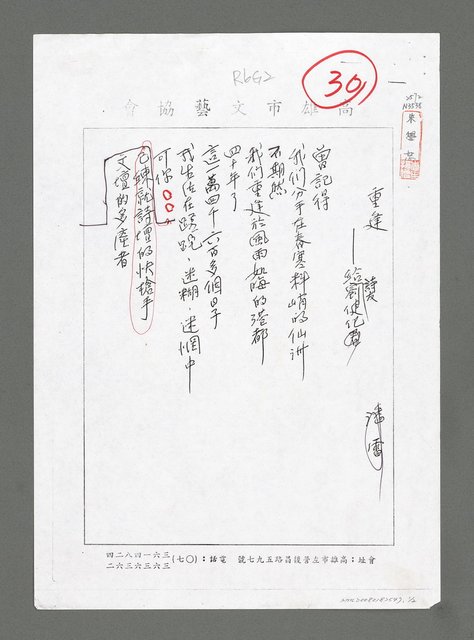 R6G2
30
2572
N3538
高雄市文藝協會
重逢
——給詩友劉健化
潘雷
曾記得
我們分手在春寒料峭的仙洲
不期然
我們重逢於風雨如晦的港都
四十年了
這一萬四千六百多個日子
我生活在蹉跎、迷糊、迷惘中
可你
已練就詩壇的快槍手
文壇的多產者
會址:高雄市左營後昌路五九七號 電話:(〇七)三六一四八二四
三六三六三六二